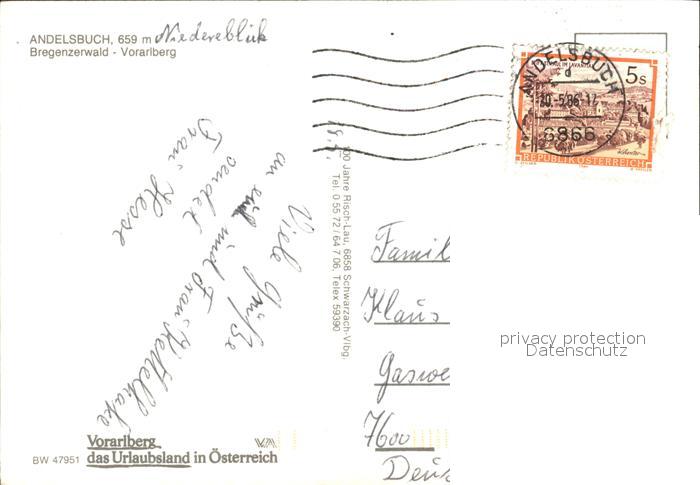 ANDELSBUCH, 659 m Niedereblick
Bregenzerwald - Vorarlberg
Viele Grüße
an euch
sendet
und Frau
Frau Hesse
18.5.
100 Jahre Risch-Lau, 6858 Schwarzach-Vlbg.
Tel. 0 55 72 / 64 7 06, Telex 59390
ANDELSBUCH
d
20.-5.86-17
6866
5s
REPUBLIK ÖSTERREICH
Famil
Klaus
Gaswe
7600
Deus
privacy protection
Datenschutz
Vorarlberg
das Urlaubsland in Österreich
VA
BW 47951